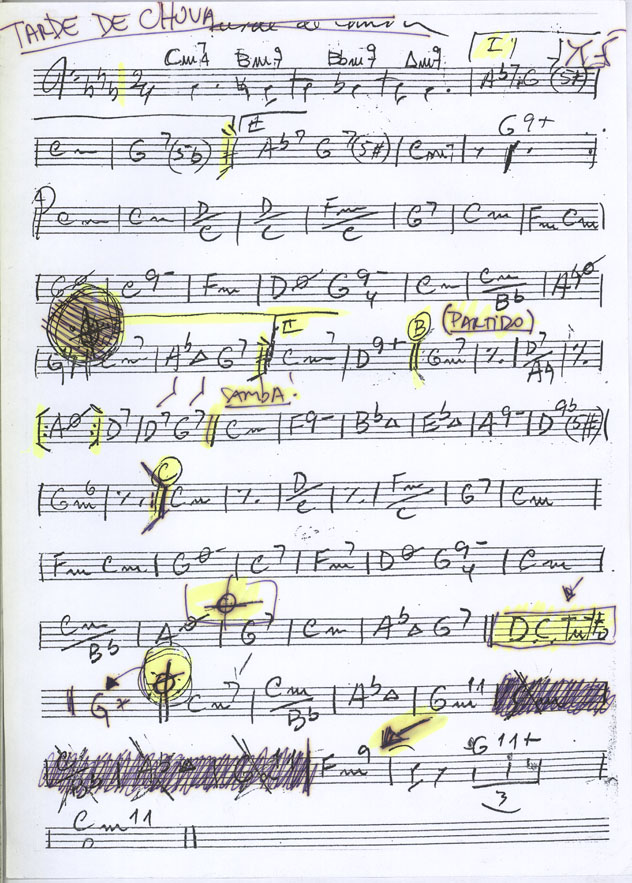 TARDE DE CHUVA
Cm7 Bm9 Bbm9 I
2/4 Ab7 G (5#)
G9+
Cm | G7 (5b) II Ab7 G7 (5#) | Cm7
Cm | Cm | D/C | D/C | Fm/C | G7 | Cm | Fm Cm
GØ | C9- | Fm | DØ G9-4 | Cm | Cm/Bb | AbØ
II B (PARTIDO)
Cm7 | Ab△ G7 | Cm7 | D9+ | Gm7 | ٪ | D7/A | ٪
SAMBA!
AØ | D7 | D7 G7 | Cm | F9- | Bb△ | Eb△ | A9- | D9b (5#)
C
Gm6 | ٪ | Cm | ٪ | D/C | ٪ | Fm/C | G7 | Cm
Fm Cm | GØ- | C7 | Fm7 | DØ G9-4 | Cm
Cm/Bb | AØ | G7 | Cm | Ab△ G7 | D.C. Tutto
G | Cm7 | Cm/Bb | Ab△ | Gm11
Fm9 | G11+
3
Cm11